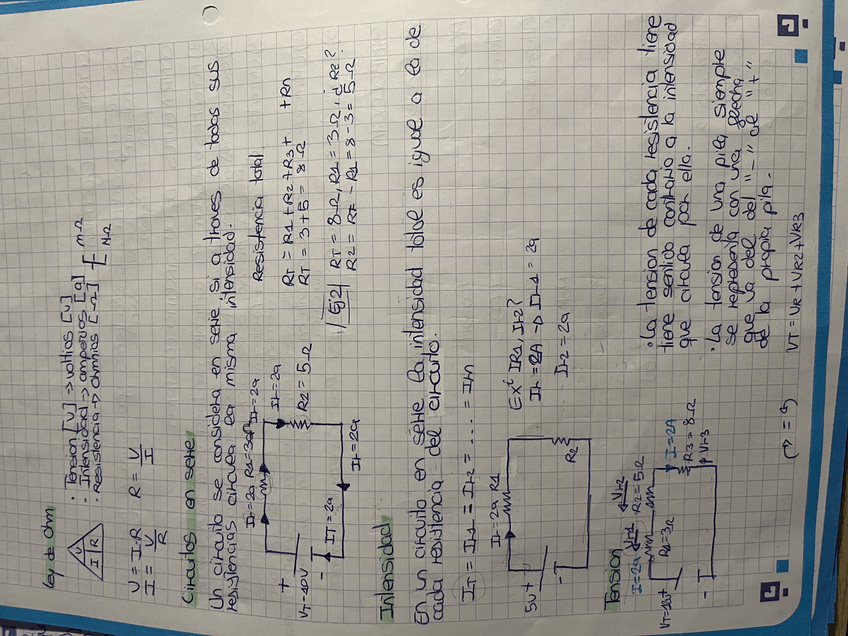 Ley de Ohm
V
I R
· Tension [V] -> voltios [v]
· Intensidad -> amperios [a]
· Resistencia -> ohmnios [Ω]
mΩ
V = I·R
R = V/I
I = V/R
Circuitos en serie
Un circuito se considera en serie si a traves de todas sus
resistencias circula la misma intensidad.
Ir=2a R1=3Ω Ir=2a
Ir=2a
R2=5Ω
+
VT=40V
-
IT=2a
Ir=2a
Resistencia total
RT = R1+R2+R3+ +Rn
RT = 3+5 = 8Ω
Ej2 RT = 8Ω, R1 = 3Ω, ¿R2?
R2 = RT - R1 = 8-3 = 5Ω
Intensidad
En un circuito en serie la intensidad total es igual a la de
cada resistencia del circuito.
IT = Ir1 = Ir2 = .... = Irn
Ir=2a R1
5V +
-
R2
Ex: IR1, Ir2?
It = 2A -> Ir1 = 2a
Ir2 = 2a
Tension
I=2a Vr1 Vr2
R1=3Ω R2=5Ω
I=2A
R3=8Ω
Vr3
+
-
· La tension de cada resistencia tiene
tiene sentido contrario a la intensidad
que circula por ella.
· La tension de una pila siempre
se representa con una flecha
que va del "-" al "+"
de la propia pila.
VT = VR + VR2 + VR3